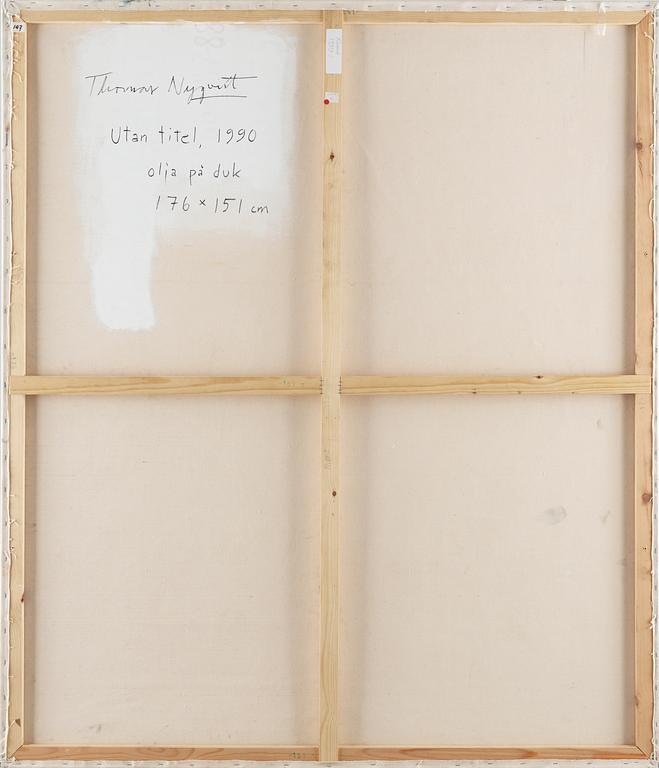 147
Thomas Nyqvist
Utan titel, 1990
olja på duk
176 x 151 cm